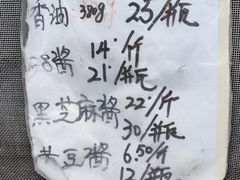 香油 380g 23/瓶
酱 14/斤
21/瓶
黑芝麻酱 22/斤
30/瓶
豆酱 6.50/斤
12/瓶